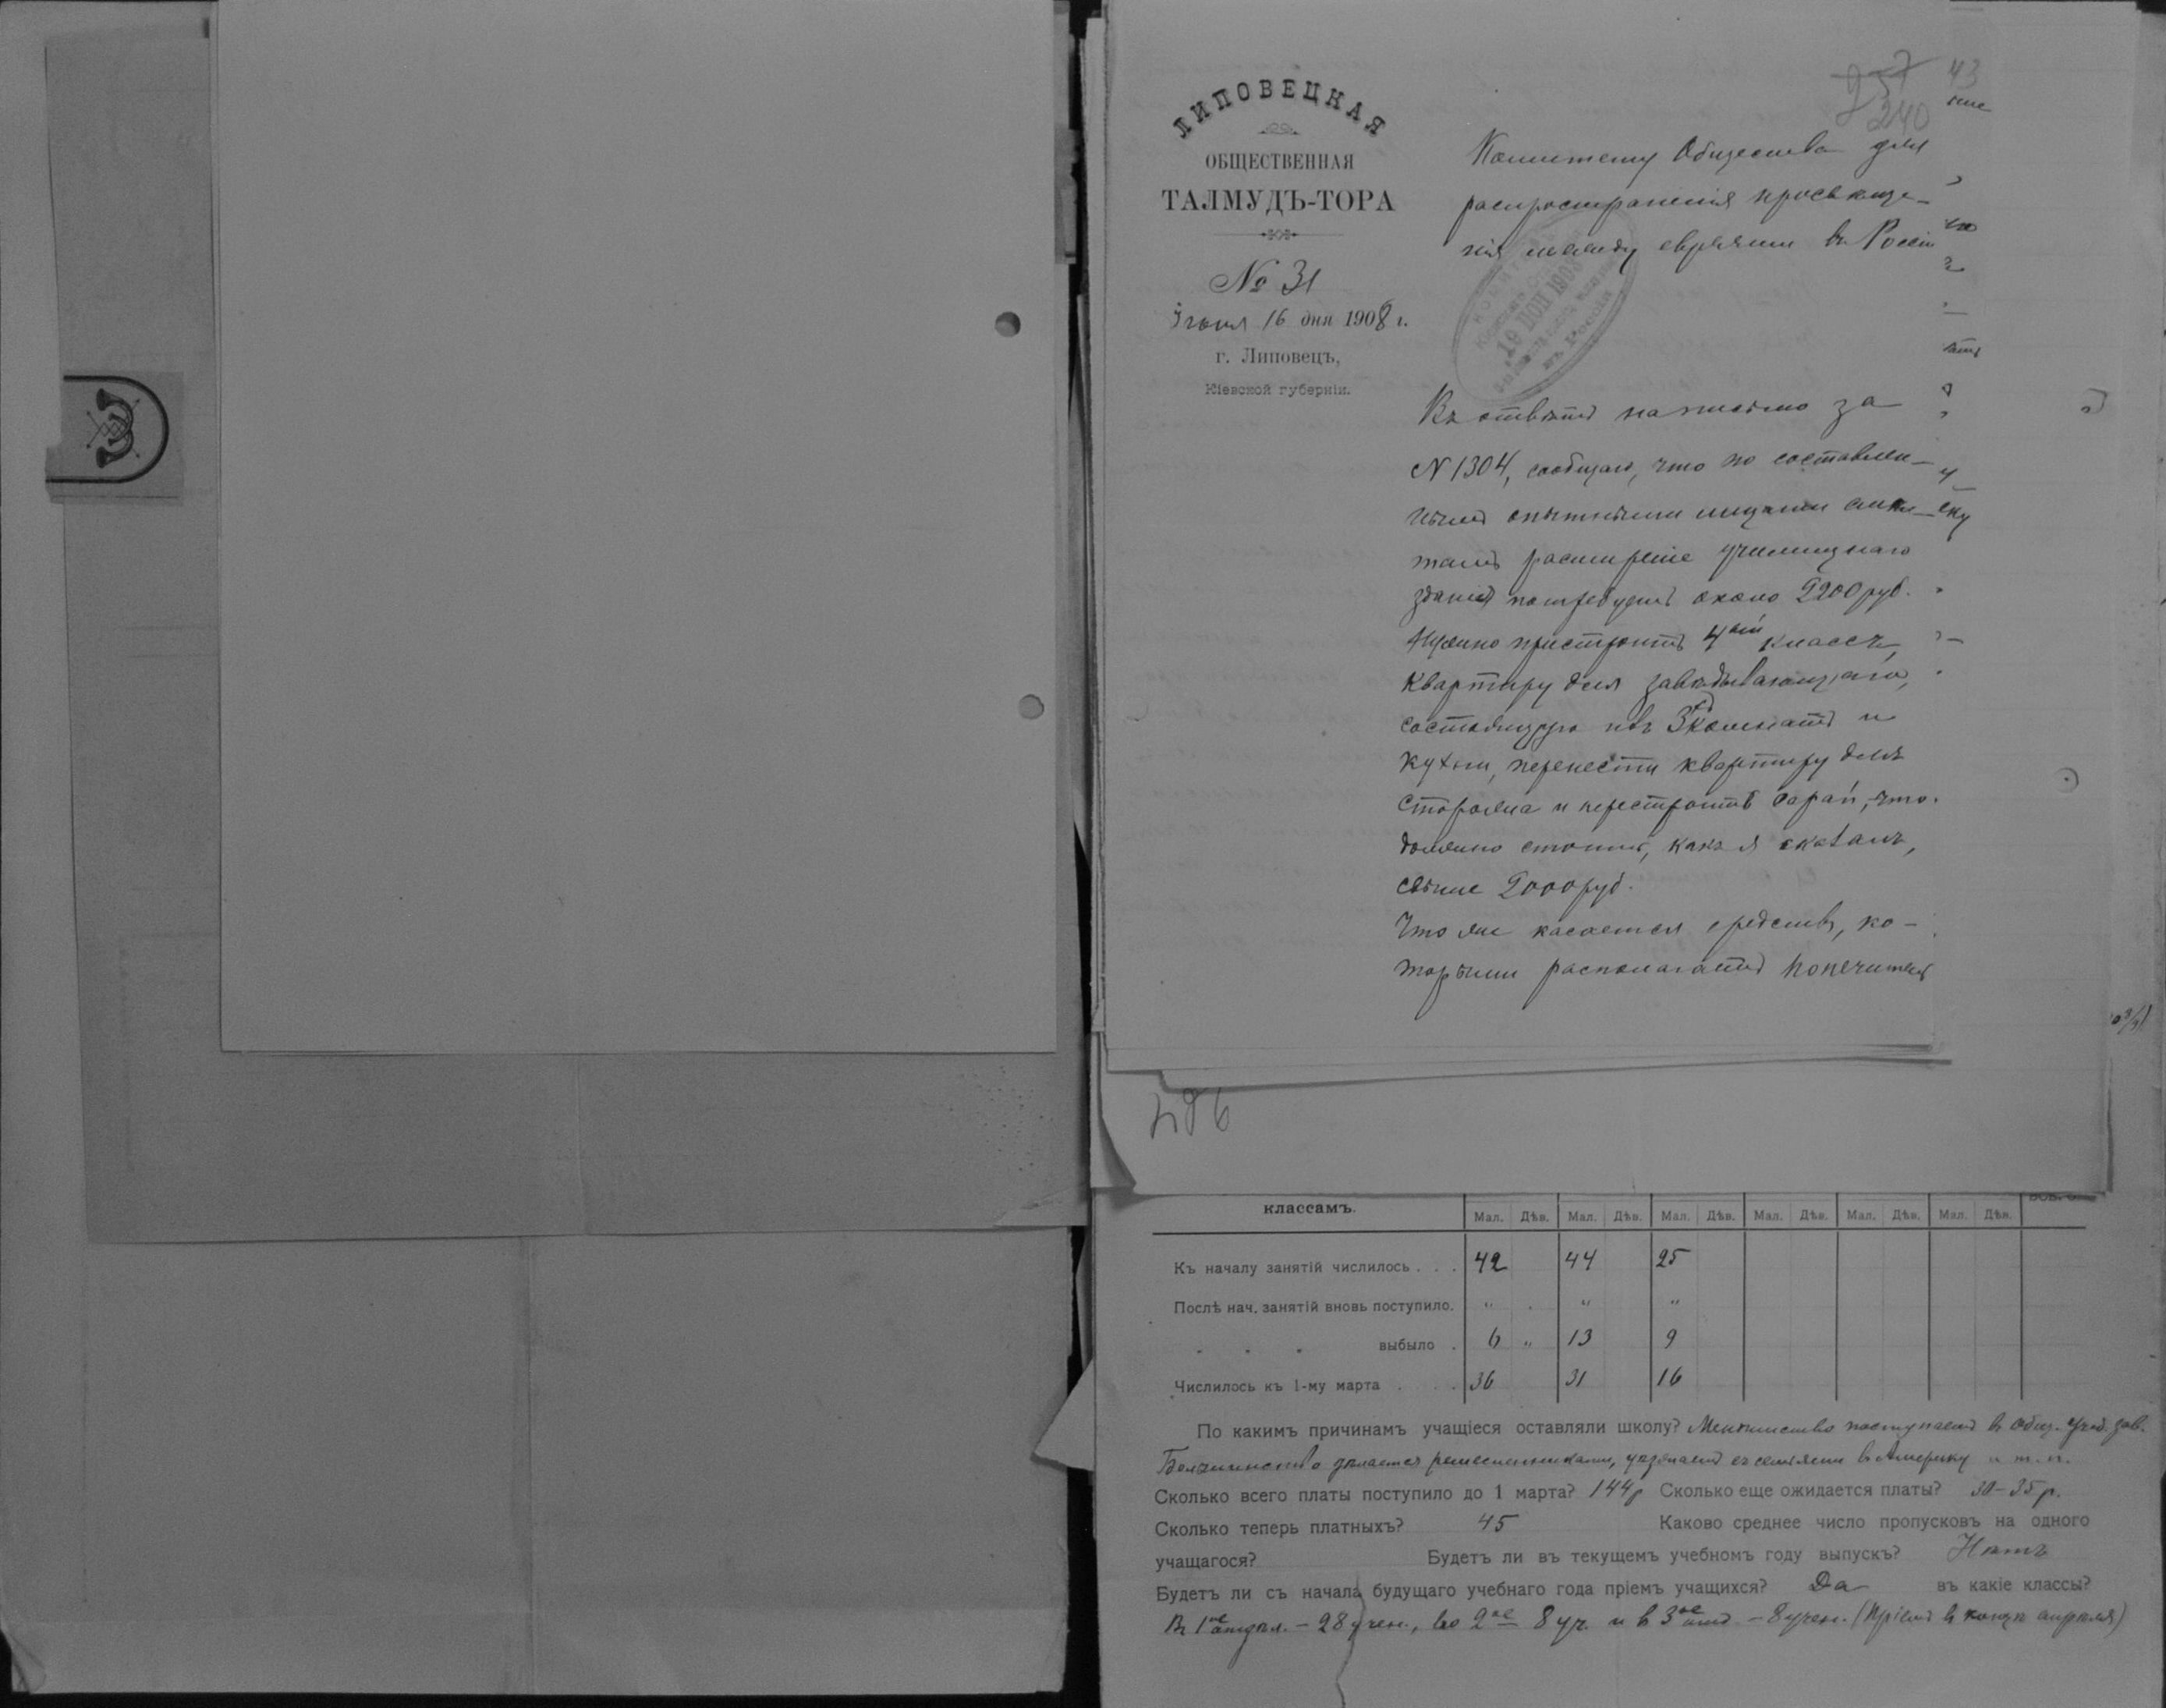 257 43
240
ЛИПОВЕЦКАЯ
ОБЩЕСТВЕННАЯ
ТАЛМУДЪ-ТОРА
№ 31
Іюня 16 дня 1908 г.
г. Липовецъ,
Кіевской губерніи.
Комитету Общества для
распространенія просвѣще-
нія между евреями въ Россіи
19 ІЮН 1908
Въ отвѣтъ на письмо за
N 1304, сообщаю, что по составлен-
нымъ опытными лицами смѣ-
тамъ расширеніе училищнаго
зданія потребуетъ около 2200 руб.
Нужно пристроить 4ый классъ,
квартиру для завѣдывающаго,
состоящую изъ 3хъ комнатъ и
кухни, перенести квартиру для
сторожа и перестроить сарай, что
должно стоить, какъ я сказалъ,
свыше 2000 руб.
Что же касается средствъ, ко-
торыми располагаетъ попечитель
классамъ.
Мал. Дѣв. Мал. Дѣв. Мал. Дѣв. Мал. Дѣв. Мал. Дѣв. Мал. Дѣв.
Къ началу занятій числилось . . . 42 44 25
Послѣ нач. занятій вновь поступило. " " "
" " " выбыло . 6 " 13 9
Числилось къ 1-му марта . . . 36 31 16
По какимъ причинамъ учащіеся оставляли школу? Меньшинство поступаетъ въ общ. учеб. зав.
Большинство дѣлается ремесленниками, уѣзжаетъ съ семьями въ Америку и т. п.
Сколько всего платы поступило до 1 марта? 144 р Сколько еще ожидается платы? 30-35 р.
Сколько теперь платныхъ? 45 Каково среднее число пропусковъ на одного
учащагося? Будетъ ли въ текущемъ учебномъ году выпускъ? Нѣтъ
Будетъ ли съ начала будущаго учебнаго года пріемъ учащихся? Да въ какіе классы?
Въ 1ое отдѣл. - 28 учен., во 2ое 8 уч. и въ 3ое отд - 8 учен. (Пріемъ въ концѣ апрѣля)